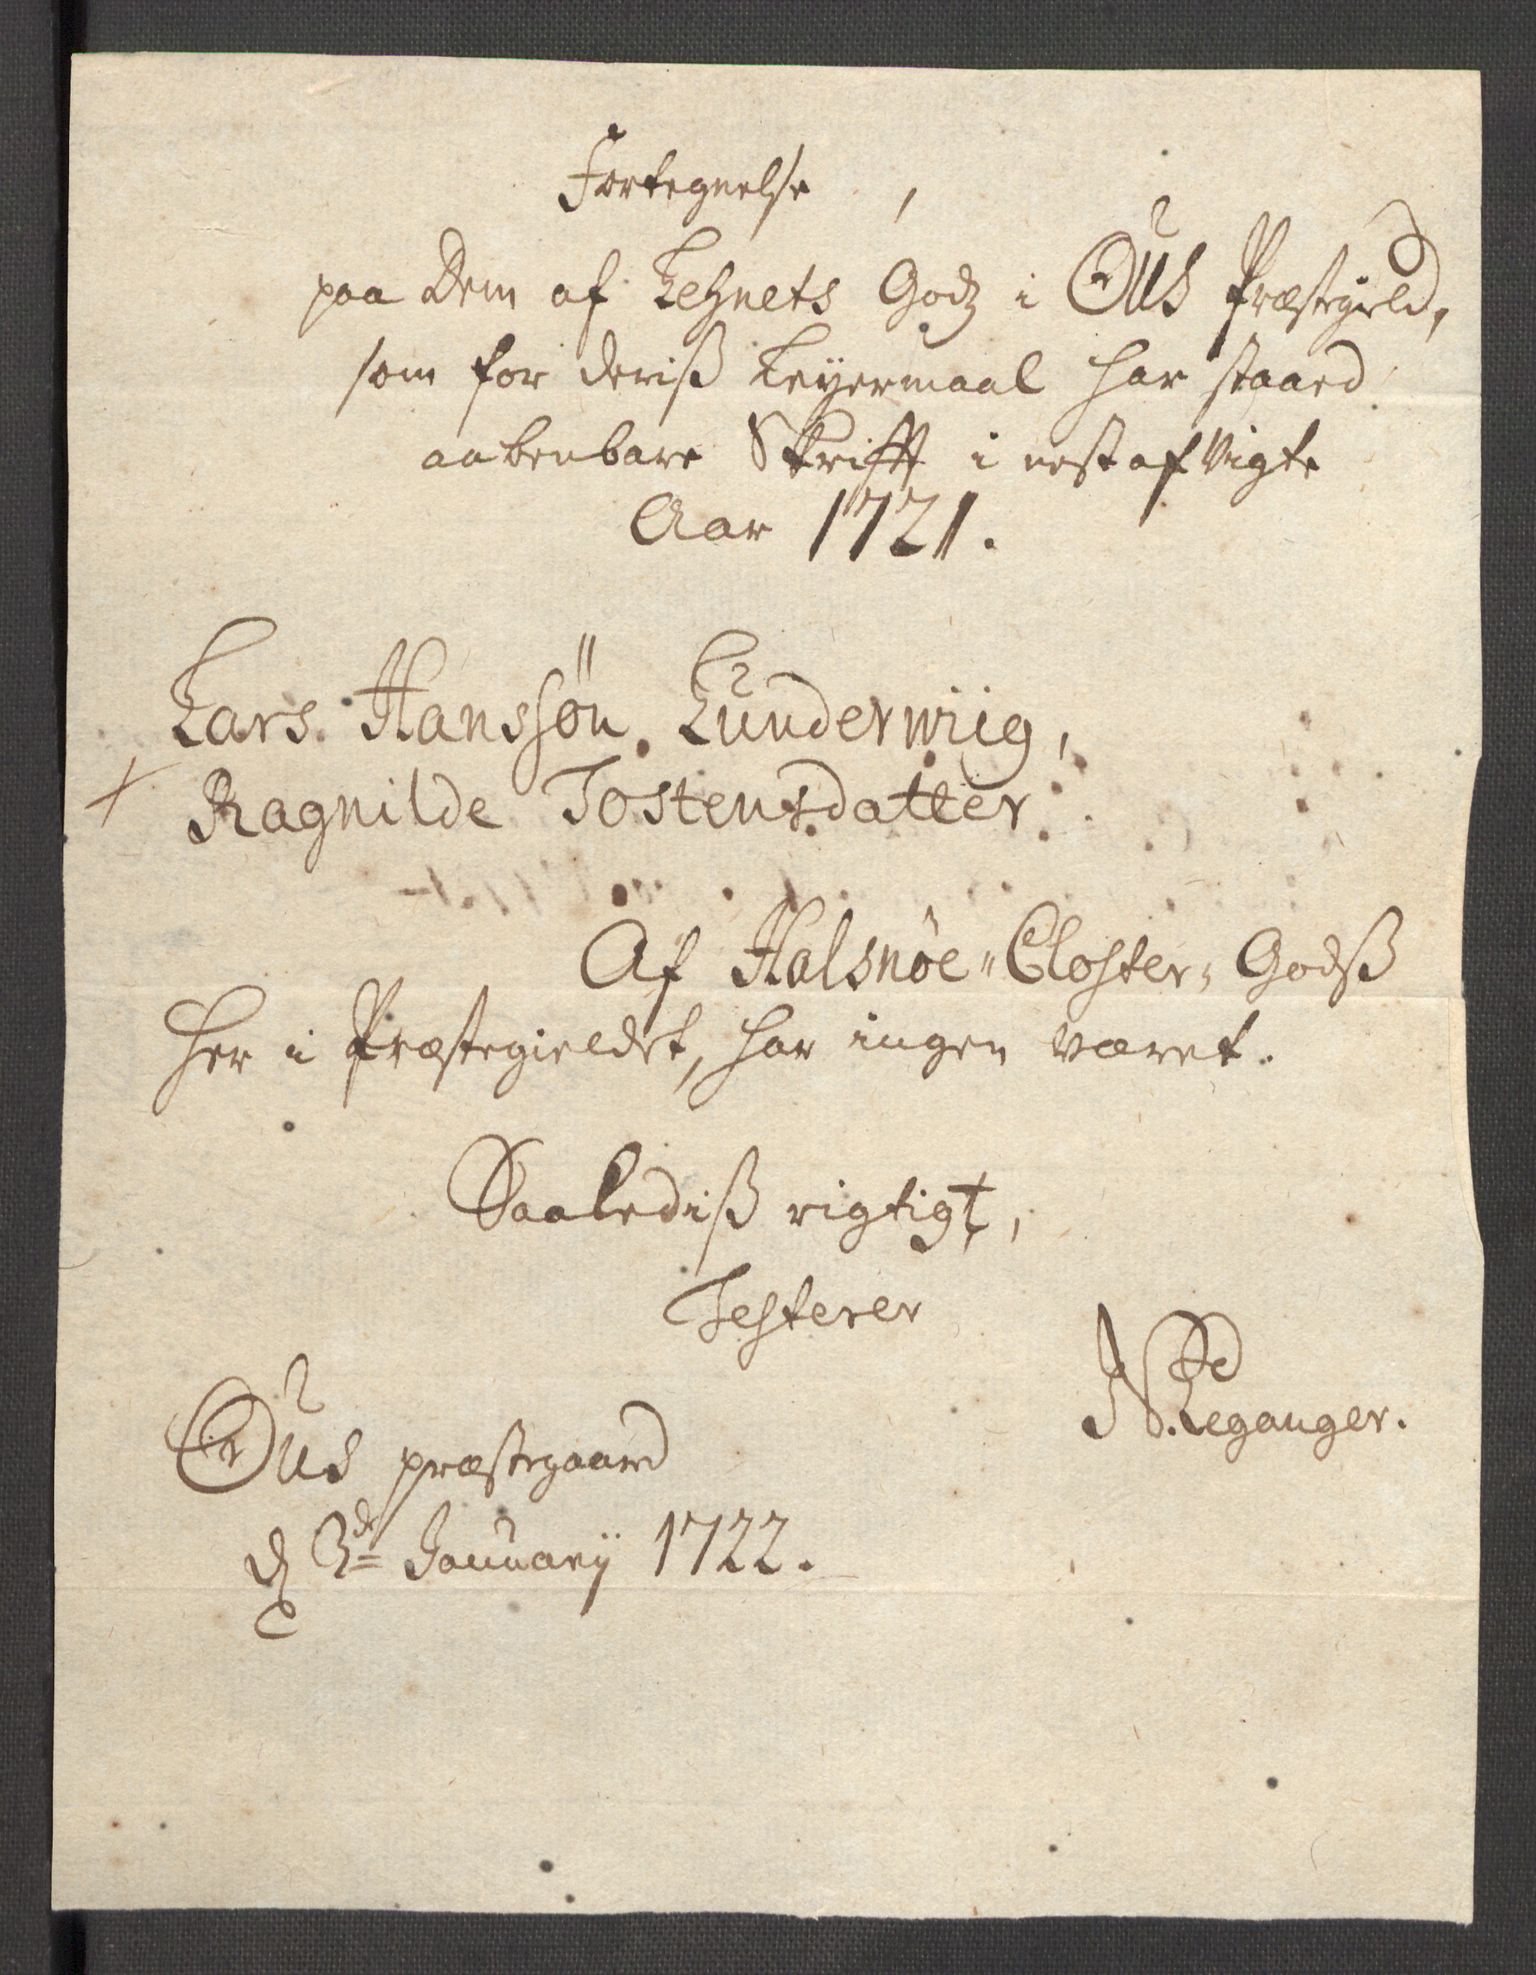 Fortegnelse,
paa Dem af Lehnets Godz i Ous Præstegield,
som for deriß Leyermaal har staaed
aabenbare Skrifft i nest afvigte
Aar 1721.
Lars Hanssön Lunderwiig,
+ Ragnilde Tostensdatter
Af Halsnöe Closter Godß
her i Præstegieldet, har ingen været.
Saalediß rigtigt,
Testerer
N. Leganger.
Ous præstegaard
d 3de January 1722.